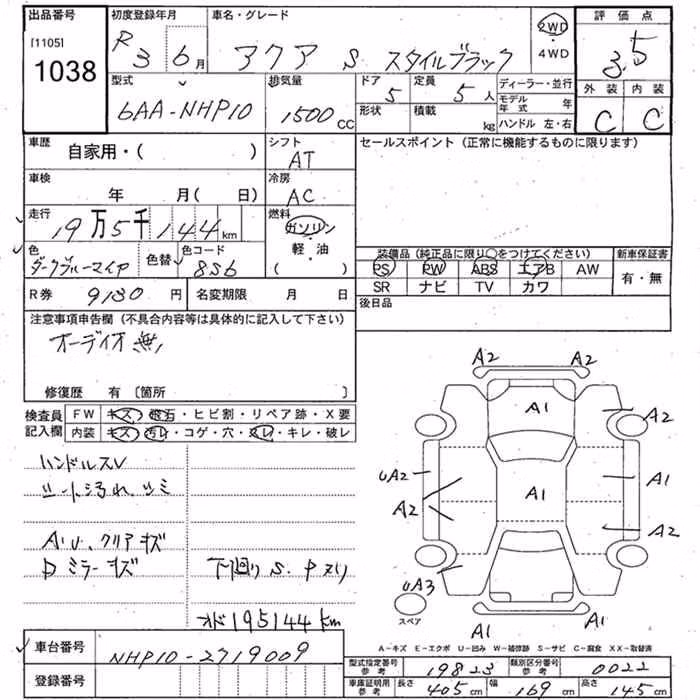 出品番号
[1105]
1038
初度登録年月
R3 6月
車名・グレード
アクア S スタイルブラック
2WD
・
4WD
評価点
3.5
外装 内装
C C
型式
6AA-NHP10
排気量
1500 CC
ドア
5
定員
5人
形状
積載
kg
ディーラー・並行
モデル年式 年
ハンドル 左・右
車歴
自家用・( )
シフト
AT
セールスポイント (正常に機能するものに限ります)
車検
年 月( 日)
冷房
AC
走行
19万5千144km
燃料
ガソリン
・
軽・油
( )
色
ダークブルーマイカ
色替
色コード
8S6
装備品 (純正品に限り○をつけてください)
新車保証書
PS PW ABS エアB AW
SR ナビ TV カワ
有・無
後日品
R券 9130円
名変期限 月 日
注意事項申告欄 (不具合内容等は具体的に記入して下さい)
オーディオ無
修復歴 有 [箇所 ]
検査員
記入欄
FW キズ・飛石・ヒビ割・リペア跡・X要
内装 キズ・汚レ・コゲ・穴・スレ・キレ・破レ
ハンドルスレ
シート汚れ、シミ
A.U、クリアキズ
Dミラーキズ
下回りS.Pヌリ
オド195144km
A2 A2
A1
A2
UA2
A2
A1
A1
A2
UA3
A1
A1
スペア
A-キズ E-エクボ U-凹み W-補修跡 S-サビ C-腐食 XX-取替済
車台番号
NHP10-2719009
登録番号
型式指定番号
参考
19823
類別区分番号
参考
0022
車庫証明用
参考
長さ 405cm
幅 169cm
高さ 145cm